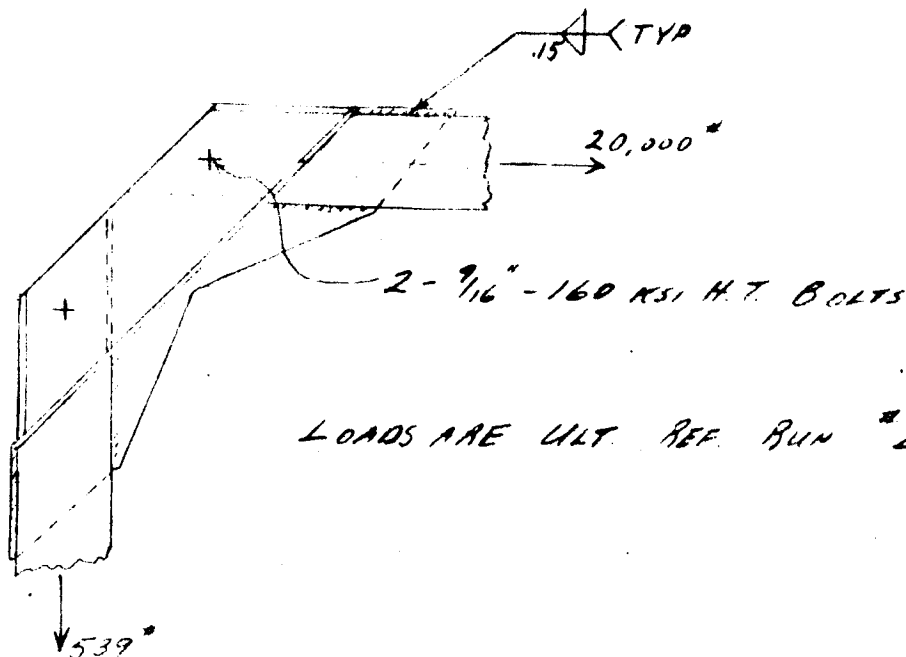 .15 TYP
20,000#
2 - 9/16" - 160 KSI H.T. BOLTS
LOADS ARE ULT. REF. RUN #
539#